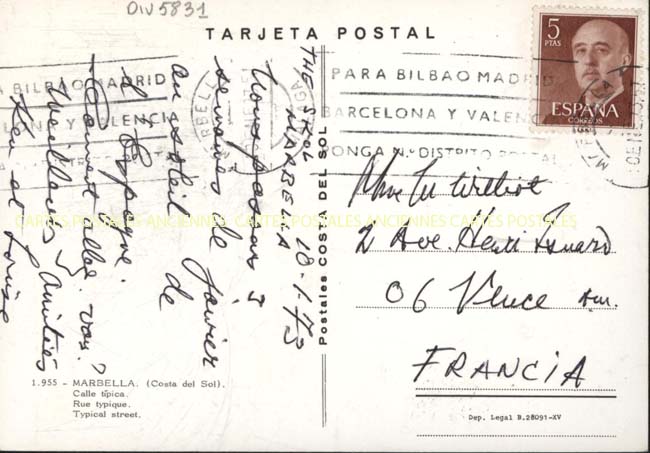 DIV5831
TARJETA POSTAL
5
PTAS
ESPAÑA
CORREOS
PARA BILBAO MADRID
BARCELONA Y VALENCIA
PONGA N.º DISTRITO POSTAL
A BILBAO MADRID
MARBELLA
THE SKOL
MARBELLA
18-1-73
Nous passons 3
semaines de janvier
au soleil de
l'Espagne.
Comment allez-vous?
Meilleures Amitiés
et Louise
2 Ave. Henri
06 Vence
FRANCIA
Postales COSTA DEL SOL
CARTES POSTALES ANCIENNES CARTES POSTALES ANCIENNES CARTES POSTALES
1.955 - MARBELLA. (Costa del Sol).
Calle típica.
Rue typique.
Typical street.
Dep. Legal B.28091-XV